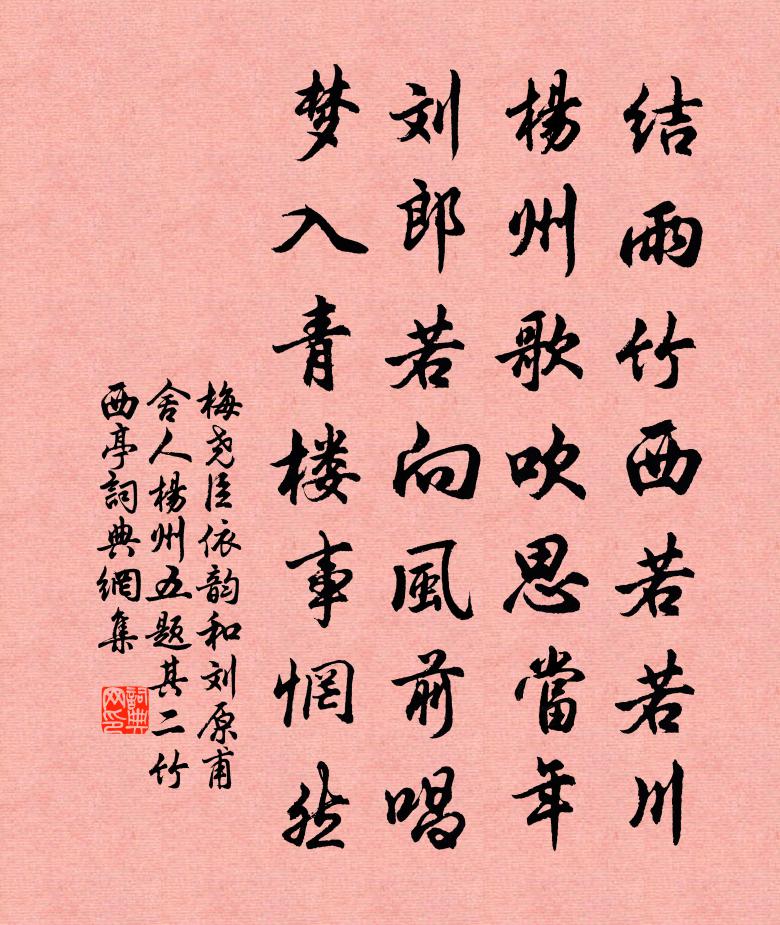 结雨竹西若若川
楊州歌吹思當年
刘郎若向風前唱
梦入青楼事惘然
梅尧臣依韵和刘原甫
舍人楊州五题其二竹
西亭詞典網集
詞典網印